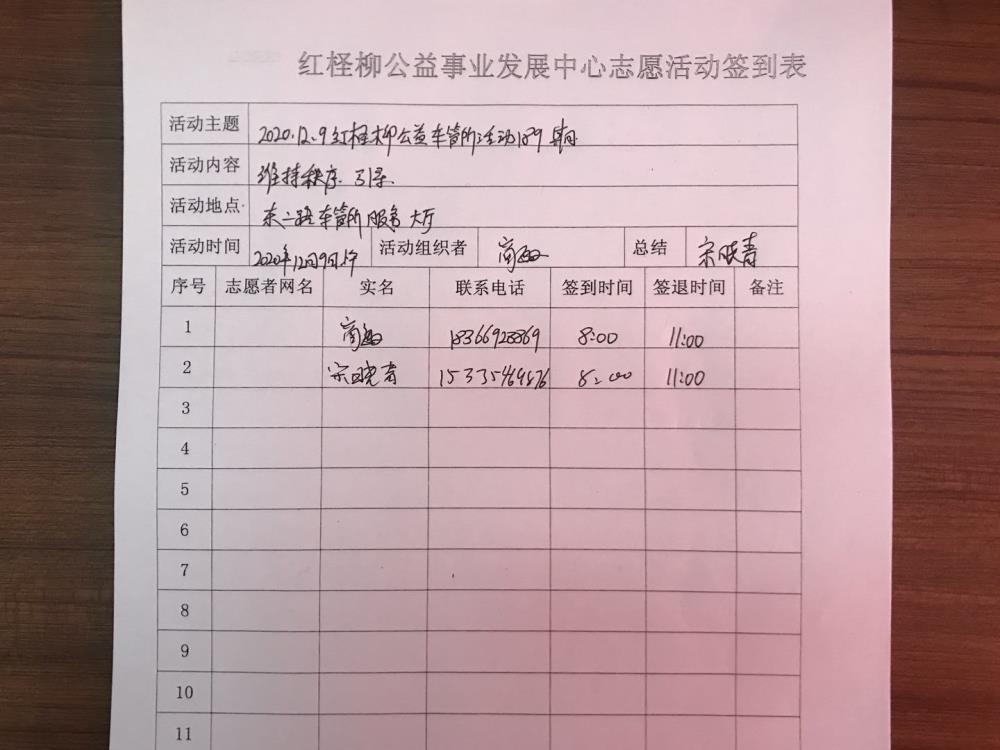 红柽柳公益事业发展中心志愿活动签到表
活动主题 2020.12.9红柽柳公益车管所活动189期
活动内容 维持秩序. 引导.
活动地点 东二路车管所服务大厅
活动时间 2020年12月9日上午 活动组织者 商 总结 宋晓青
序号 志愿者网名 实名 联系电话 签到时间 签退时间 备注
1 商 18366928869 8:00 11:00
2 宋晓青 15335469876 8:00 11:00
3
4
5
6
7
8
9
10
11